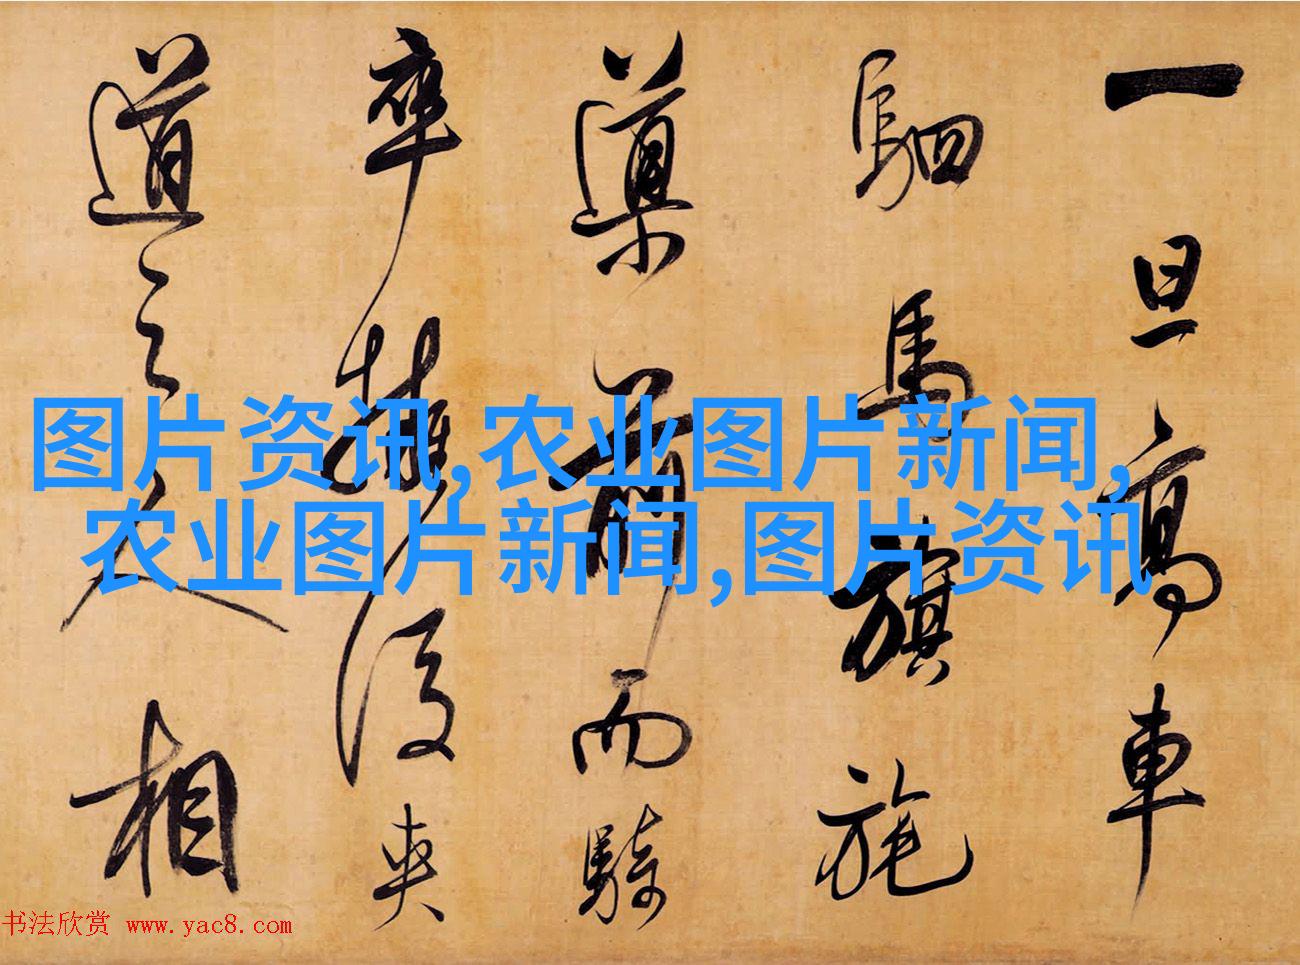 一旦高車
駟馬旗旄
導前而騎
卒擁後夾
道之人相
图片资讯,农业图片新闻,
农业图片新闻,图片资讯
书法欣赏 www.yac8.com